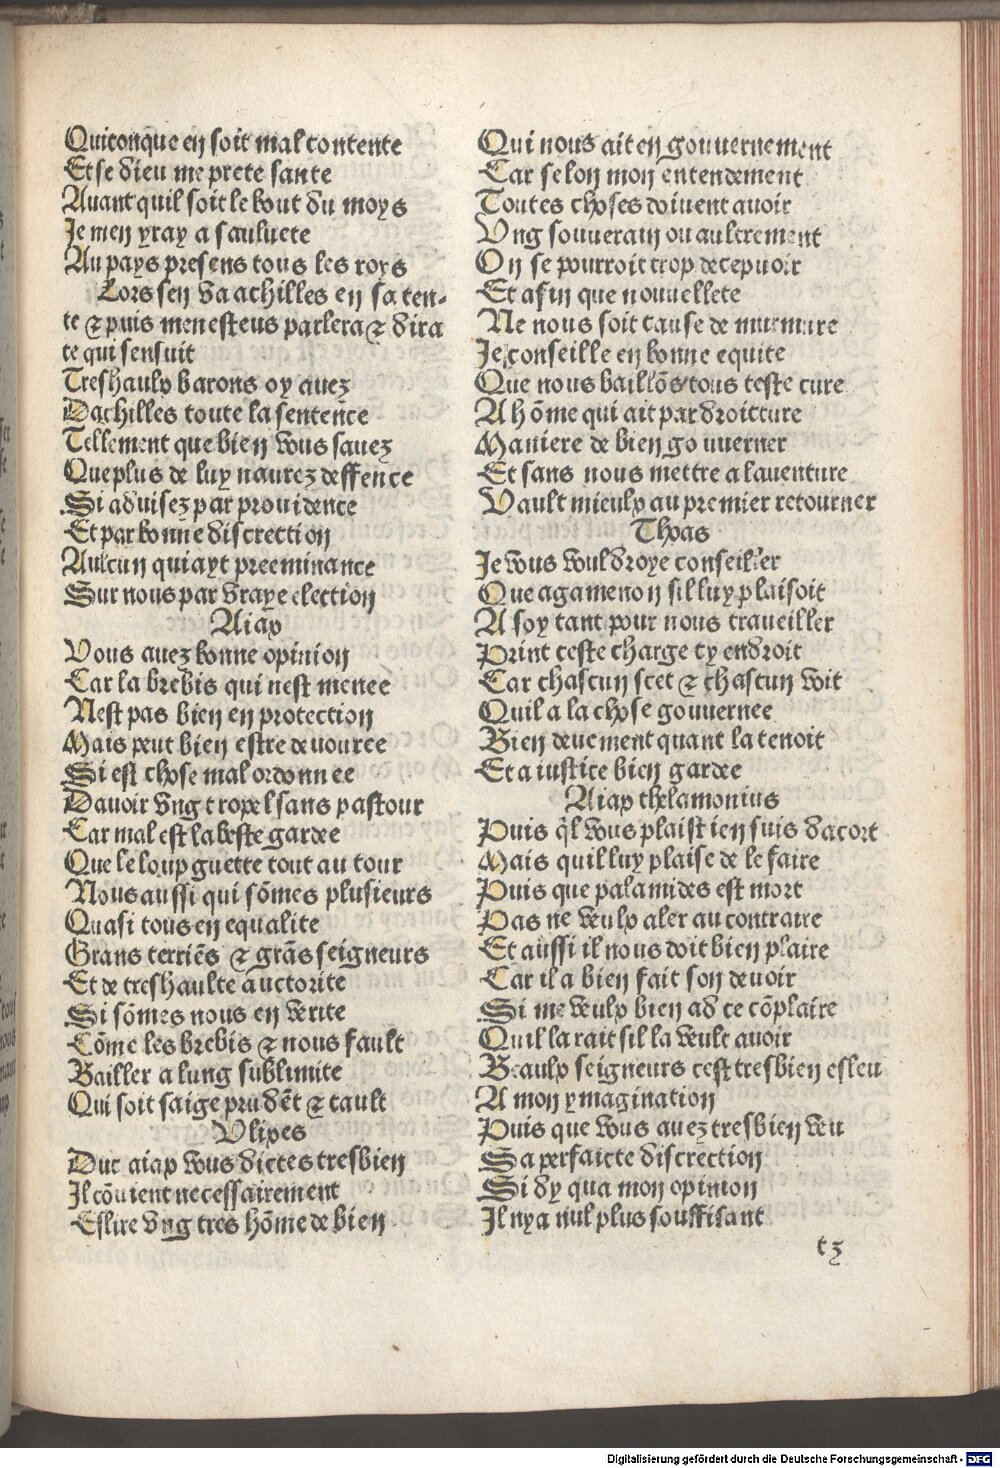 Quiconque en soit mal contente
Et se dieu me prete sante
Auant quil soit le bout du moys
Je men yray a sauluete
Au pays presens tous les roys
Lors sen va achilles en sa ten-
te ⁊ puis menesteus parlera ⁊ dira
ce qui sensuit
Treshaulx barons oy auez
Dachilles toute la sentence
Tellement que bien vous sauez
Que plus de luy naurez deffence
Si aduisez par prouidence
Et par bonne discrection
Aulcun qui ayt preeminance
Sur nous par vraye election
Aiax
Vous auez bonne opinion
Car la brebis qui nest menee
Nest pas bien en protection
Mais peut bien estre deuouree
Si est chose mal ordonnee
Dauoir vng tropel sans pastour
Car mal est la beste gardee
Que le loup guette tout au tour
Nous aussi qui sōmes plusieurs
Quasi tous en equalite
Grans terriēs ⁊ grās seigneurs
Et de treshaulte auctorite
Si sōmes nous en verite
Cōme les brebis ⁊ nous fault
Bailler a lung sublimite
Qui soit saige prudēt ⁊ cault
Vlixes
Duc aiax vous dictes tresbien
Il cōuient necessairement
Eslire vng tres hōme de bien
Qui nous ait en gouuernement
Car selon mon entendement
Toutes choses doiuent auoir
Vng souuerain ou aultrement
On se pourroit trop decepuoir
Et afin que nouuellete
Ne nous soit cause de murmure
Je conseille en bonne equite
Que nous baillōs tous ceste cure
A hōme qui ait par droicture
Maniere de bien gouuerner
Et sans nous mettre a lauenture
Vault mieulx au premier retourner
Thoas
Je vous vouldroye conseiller
Que agamenon sil luy plaisoit
A soy tant pour nous traueiller
Print ceste charge cy endroit
Car chascun scet ⁊ chascun voit
Quil a la chose gouuernee
Bien deuement quant la tenoit
Et a iustice bien gardee
Aiax thelamonius
Puis q̄l vous plaist ien suis dacort
Mais quil luy plaise de le faire
Puis que palamides est mort
Pas ne veulx aler au contraire
Et aussi il nous doit bien plaire
Car il a bien fait son deuoir
Si me veulx bien ad ce cōplaire
Quil la rait sil la veult auoir
Beaulx seigneurs cest tresbien esleu
A mon ymagination
Puis que vous auez tresbien veu
Sa perfaicte discrection
Si dy qua mon opinion
Il nya nul plus souffisant
tz
Digitalisierung gefördert durch die Deutsche Forschungsgemeinschaft - DFG